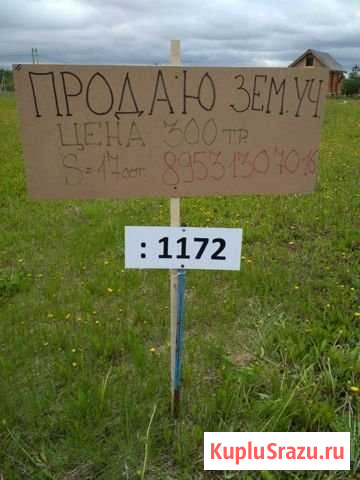 ПРОДАЮ ЗЕМ.УЧ
ЦЕНА 300 ТР.
S=17сот. 89531307016
: 1172
KupluSrazu.ru